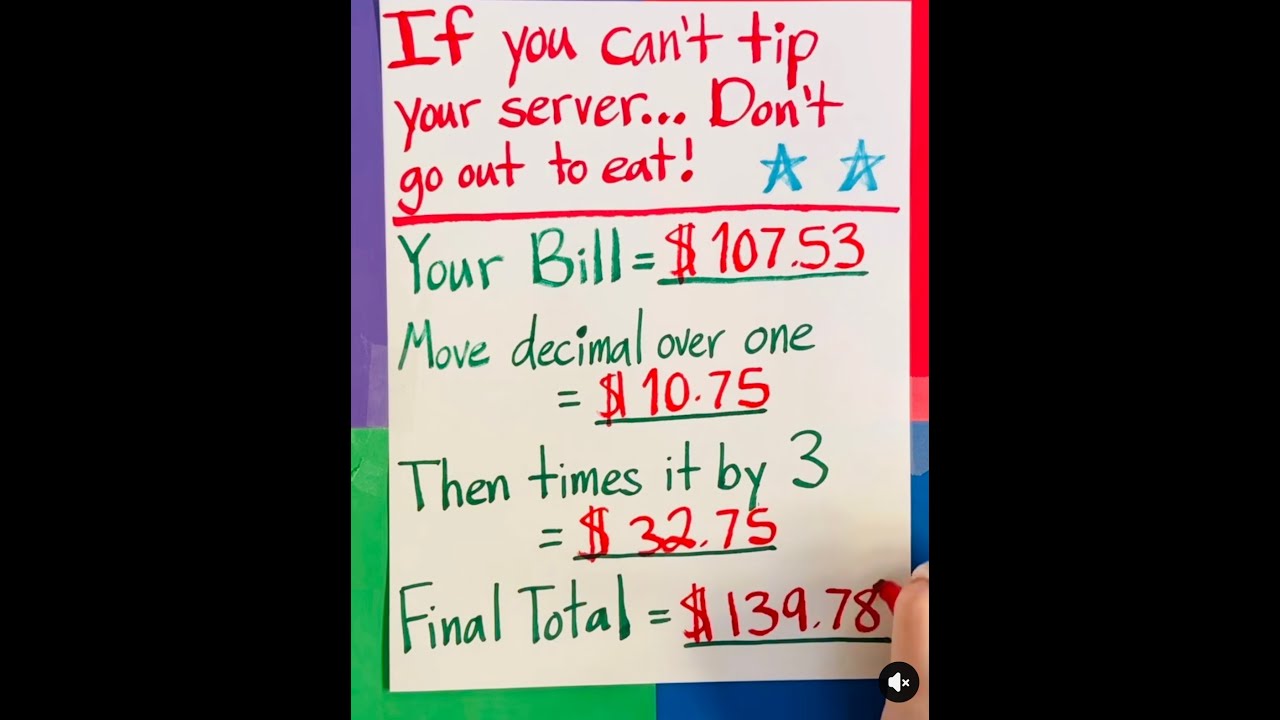 If you can't tip
your server... Don't
go out to eat!
Your Bill = $107.53
Move decimal over one
= $10.75
Then times it by 3
= $32.75
Final Total = $139.78